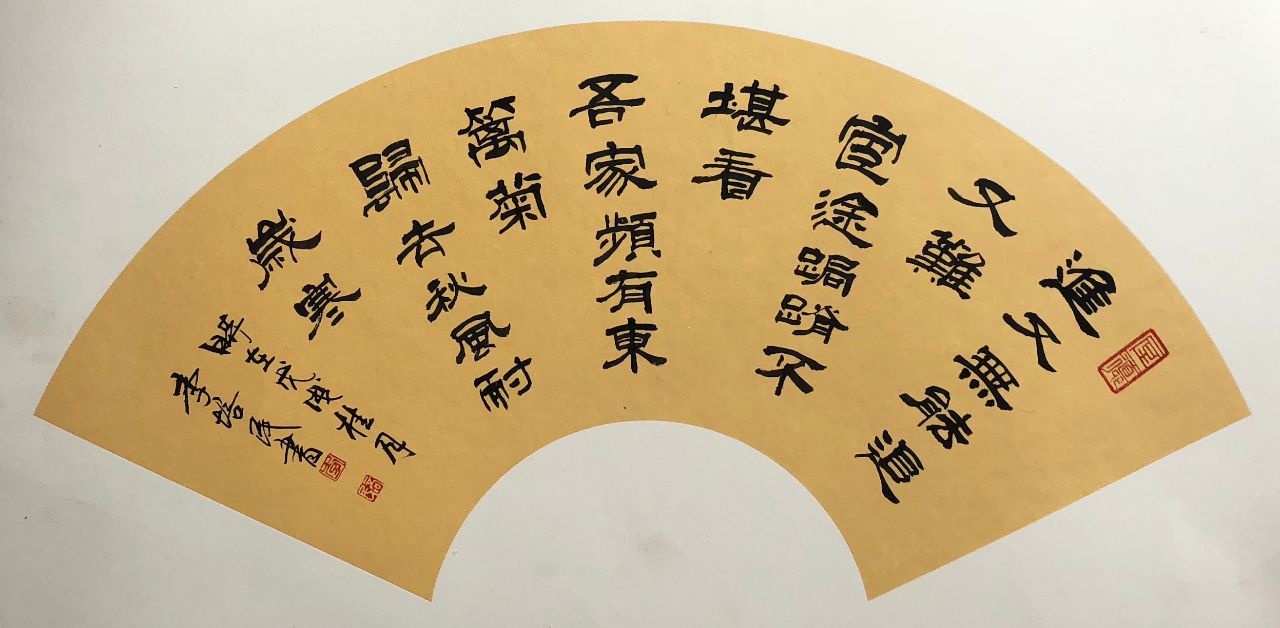 進又無能退
又難
宦途跼蹐不
堪看
吾家頻有東
篱菊
歸去秋風耐
歲寒
時在戊戌桂月
李培書